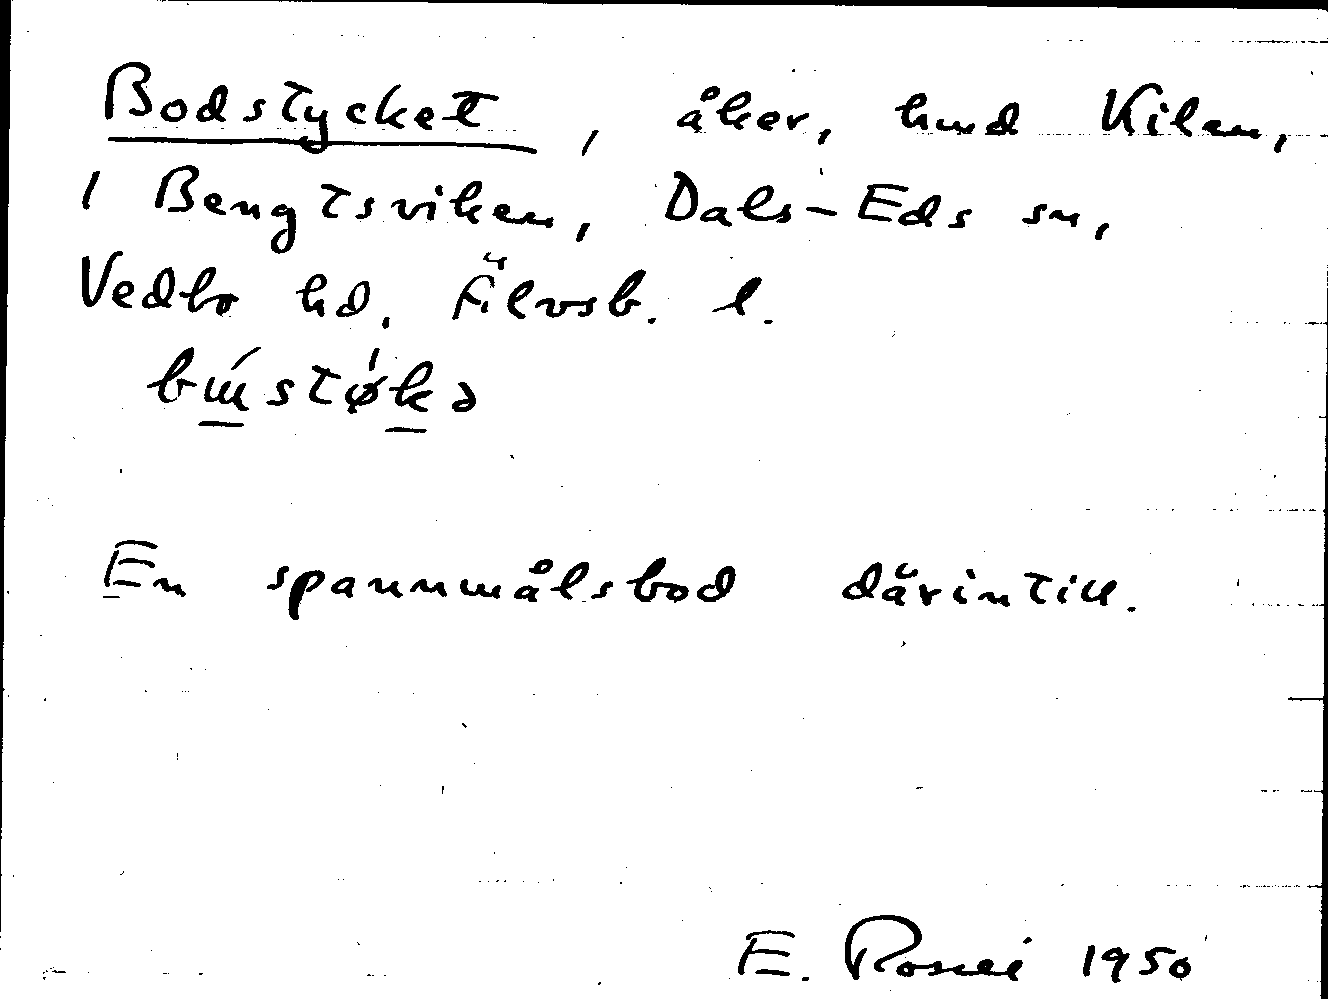 Bodstycket, åker, hmd Kilen,
1 Bengtsviken, Dals-Eds sn,
Vedbo hd. Älvsb. l.
En spannmålsbod därintill.
E. 1950